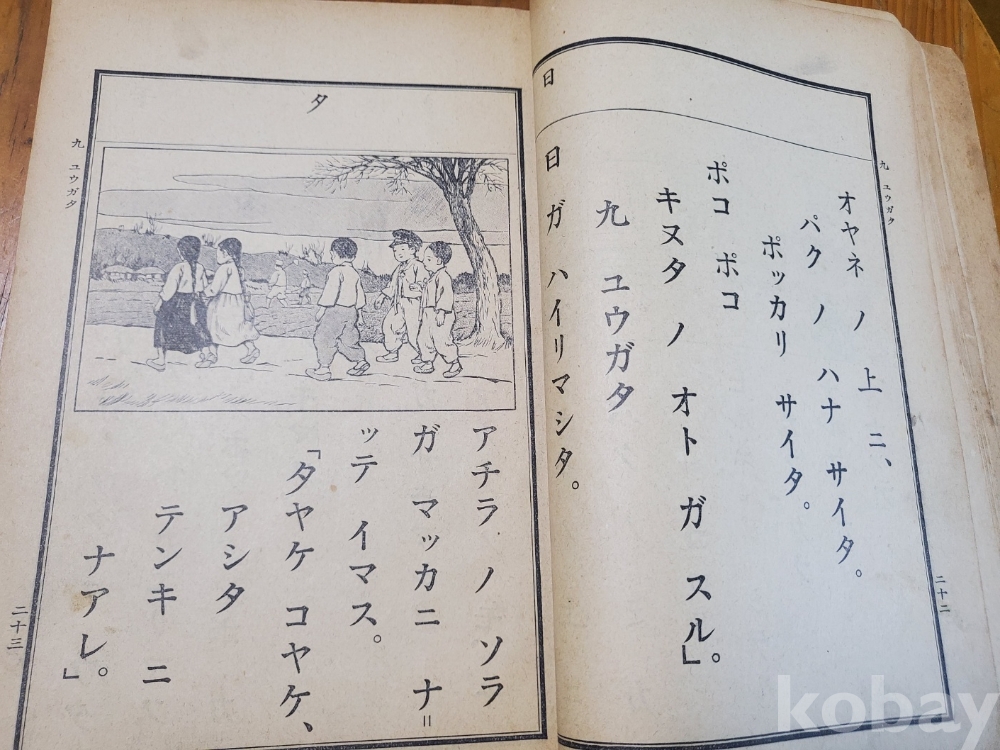 九 ユウガタ
オヤネ ノ 上 ニ、
パク ノ ハナ サイタ。
ポッカリ サイタ。
ポコ ポコ
キヌタ ノ オト ガ スル」。
九 ユウガタ
日
日 ガ ハイリマシタ。
二十二
タ
アチラ ノ ソラ
ガ マッカニ ナ=
ッテ イマス。
「タヤケ コヤケ、
アシタ
テンキ ニ
ナアレ。」
九 ユウガタ
二十三
kobay